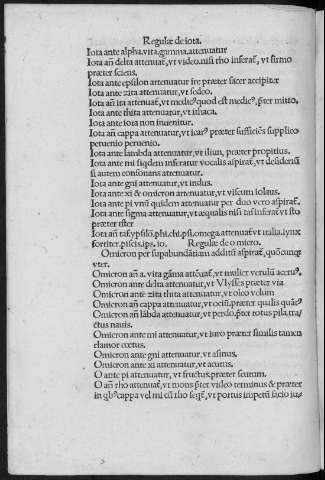 Regulæ de iota.
Iota ante alpha.vita.gamma.attenuatur
Iota añ delta attenuat̃,vt video.nisi rho inserat̃,vt firmo
præter sciens.
Iota ante epsilon attenuatur ire præter facer accipiter
Iota ante zita attenuatur,vt sedeo.
Iota añ ita attenuat̃,vt medicꝰquod est medicꝰ,p̃ter mitto,
Iota ante thita attenuatur,vt ithaca.
Iota ante iota non inuenitur.
Iota añ cappa attenuatur,vt icarꝰ præter sufficiẽs supplico
peruenio peruenio.
Iota ante lambda attenuatur,vt ilium, præter propitius.
Iota ante mi siqdem inseratur vocalis aspirat̃,vt desiderii
si autem consonans attenuatur.
Iota ante gni attenuatur,vt indus.
Iota ante xi & omicron attenuatur,vt viscum iolaus.
Iota ante pi vnũ quidem attenuatur per duo vero aspirat̃.
Iota ante sigma attenuatur,vt æqualis nisi taf inserat̃ vt sto
præter ister
Iota añ taf.ypsilõ.phi.chi.psi.omega.attenuat̃ vt italia.iynx
fortiter.piscis.ips.io. Regulæ de o micro.
Omicron per supabundãtiam additũ aspirat̃,quocunqʒ
vter.
Omicron añ a. vita gãma attẽuat̃,vt mulier verulũ aceruꝰ.
Omicron ante delta attenuatur,vt Vlysses præter via
Omicron ante zita thita attenuatur,vt oleo volum
Omicron añ cappa attenuatur,vt ociũ,præter qualis quãꝰ
Omicron añ lãbda attenuatur,vt perdo,p̃ter totus pila,tra/
ctus nauis.
Omicron ante mi attenuatur,vt iuro præter similis tamen
clamor coetus.
Omicron ante gni attenuatur,vt asinus.
Omicron ante xi attenuatur,vt acutus.
O ante pi attenuatur, vt fructus.præter scutum.
O añ rho attenuat̃,vt mons p̃ter video terminus & præter
in qbꝰcappa vel mi cũ rho seqt̃,vt portus impetũ facio iu⸗